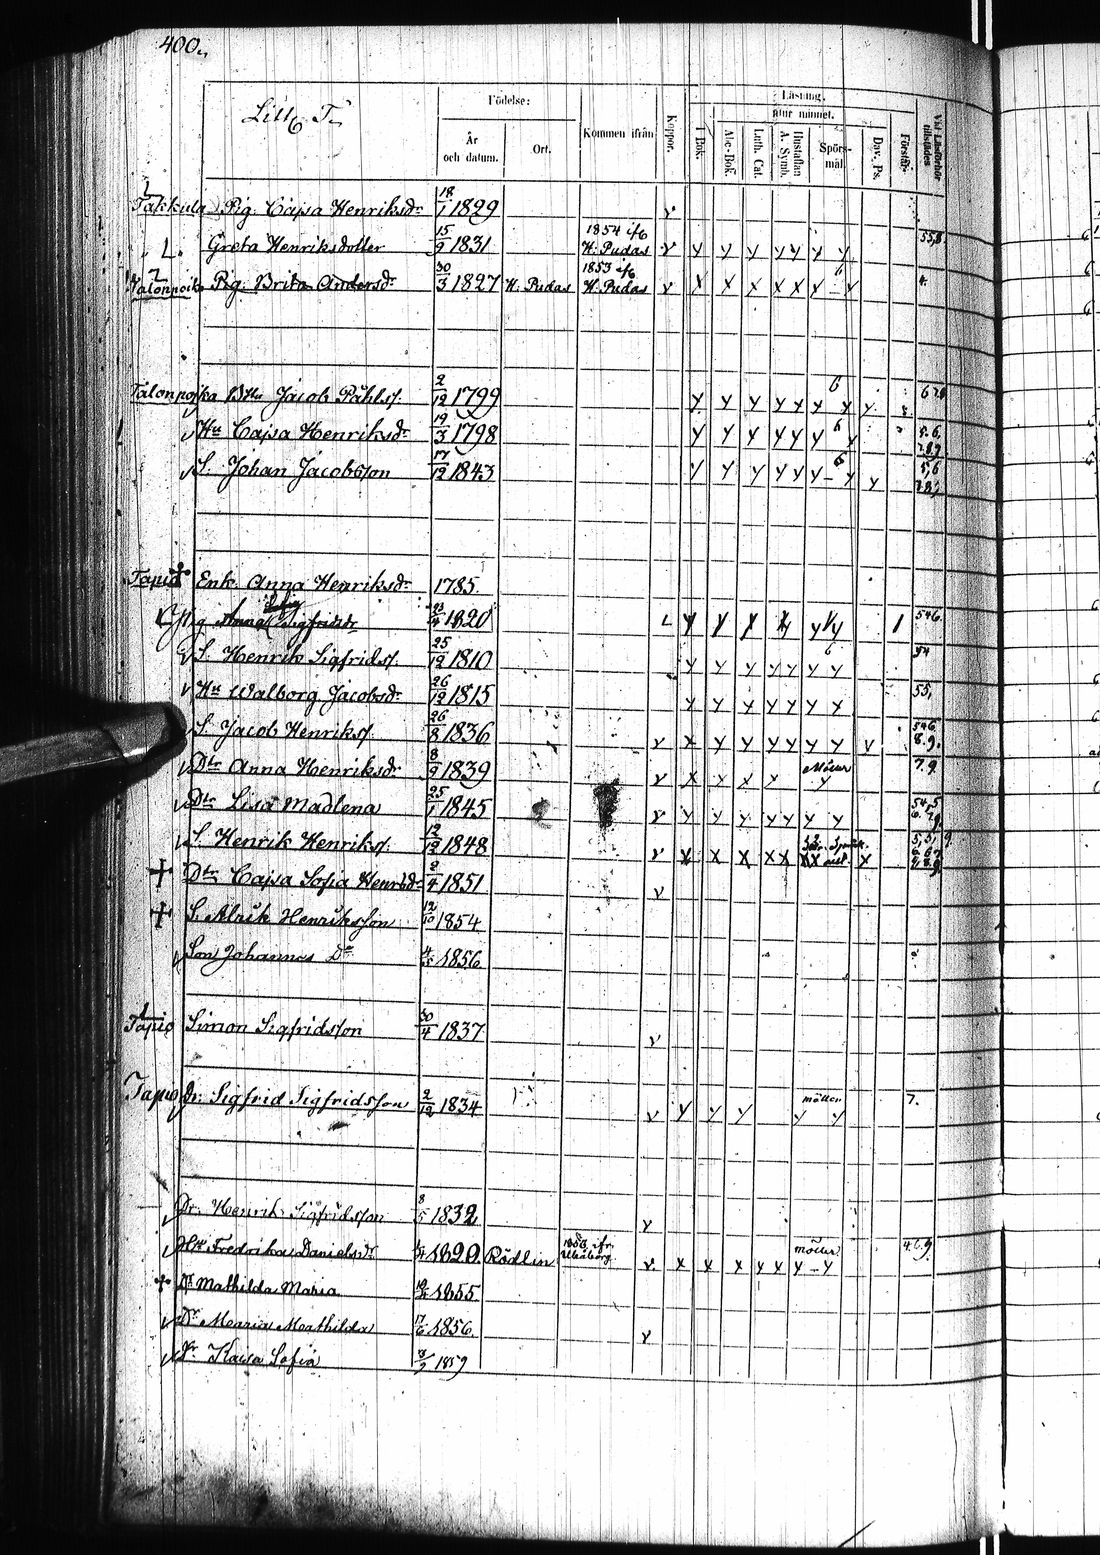 400.
Litt. T.
Födelse:
År och datum.
Ort.
Kommen ifrån
Koppor.
Läsning,
utur minnet.
I Bok.
Abc-Bok.
Luth. Cat.
Hustaflan A. Symb.
Spörsmål.
Dav. Ps.
Förstår
Vid Läsförhör tillstädes
Takkula Pig. Cajsa Henriksdr 18/1 1829 v
L. Greta Henriksdotter 15/9 1831 1854 ifr H. Pudas v y y y y y y y 55,8
Talonpoika Pig. Brita Andersdr 30/3 1827 H. Pudas 1853 ifr H. Pudas v x x x x x x - x 6 4.
Talonpojka Jacob Påhlsf. 2/12 1799 y y y y y y y y 6
Hu Cajsa Henriksdr 19/3 1798 y y y y y y y 6 5.6. 7.8.9
S. Johan Jacobsson 17/12 1843 y y y y y y - y y 6 5,6 7.8.9
Tapio Enk. Anna Henriksdr 1785.
Anna Sigfridsdr 1820 546
S. Henrik Sigfridsf. 25/12 1810 y y y y y y y 54
Hu Walborg Jacobsdr 26/12 1815 y y y y y y y 55,
S. Jacob Henriksf. 26/8 1836 v x y y y y y y v 546 8.9.
Dtr Anna Henriksdr 8/9 1839 v x y y y Möter y 7.9.
Dtr Lisa Madlena 25/1 1845 v y y y y y y y 54,5
S. Henrik Henriksf. 12/12 1848 v x x x x x x x x
Dtr Cajsa Sofia Henriksdr 2/4 1851 v
S. Alrik Henriksson 12/10 1854
Son Johannes Dn 1856
Tapio Simon Sigfridsson 30/4 1837 v
Tapio Dr. Sigfrid Sigfridsson 2/12 1834 v y y y möter y y 7.
Dr. Henrik Sigfridsson 8/5 1832 v
Hu Fredrika Danielsdr 1820 Rödlin ifr. Uleåborg v x x x x x y - y möter 4.6.9.
Dr Mathilda Maria 1855
Dr Maria Mathilda 17/6 1856 v
Dr Kaisa Sofia 1859